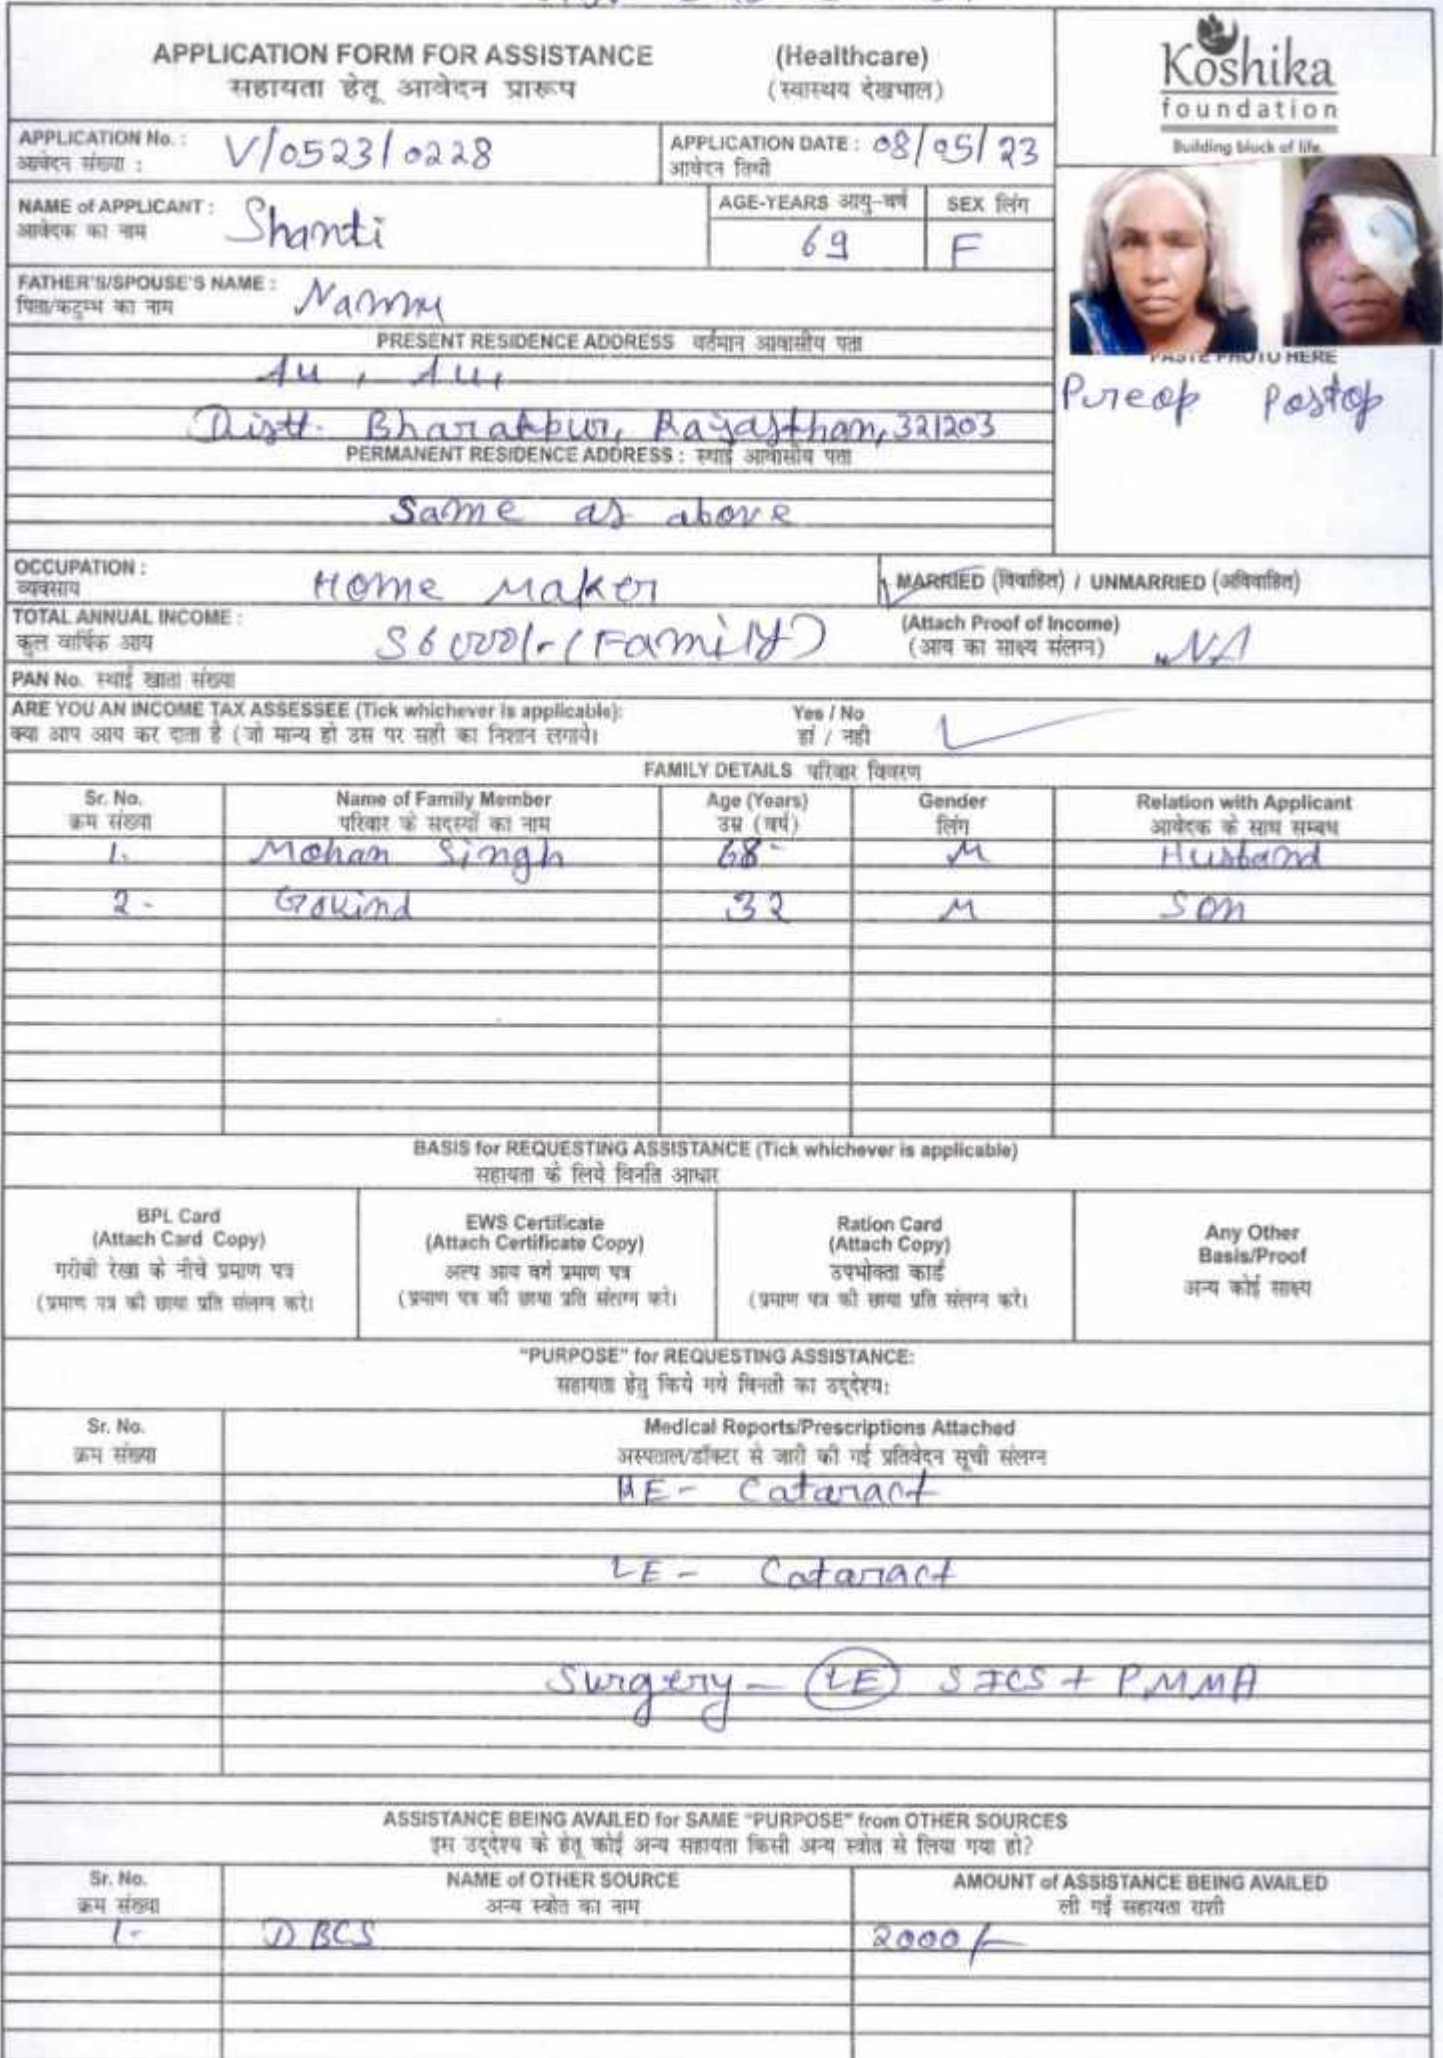 APPLICATION FORM FOR ASSISTANCE (Healthcare)
सहायता हेतू आवेदन प्रारूप (स्वास्थय देखभाल)
Koshika
foundation
Building block of life.
APPLICATION No. : V/0523/0228 APPLICATION DATE : 08/05/23
आवेदन संख्या : आवेदन तिथी
NAME of APPLICANT : Shanti AGE-YEARS आयु-वर्ष SEX लिंग
आवेदक का नाम 69 F
FATHER'S/SPOUSE'S NAME :
पिता/कटुम्भ का नाम
PASTE PHOTO HERE
Preop Postop
PRESENT RESIDENCE ADDRESS वर्तमान आवासीय पता
Distt. Bharatpur, Rajasthan, 321203
PERMANENT RESIDENCE ADDRESS : स्थाई आवासीय पता
Same as above
OCCUPATION : Home Maker MARRIED (विवाहित) / UNMARRIED (अविवाहित)
व्यवसाय
TOTAL ANNUAL INCOME : (Family) (Attach Proof of Income) NA
कुल वार्षिक आय (आय का साक्ष्य संलग्न)
PAN No. स्थाई खाता संख्या
ARE YOU AN INCOME TAX ASSESSEE (Tick whichever is applicable): Yes / No
क्या आप आय कर दाता है (जो मान्य हो उस पर सही का निशान लगाये। हां / नही
FAMILY DETAILS परिवार विवरण
Sr. No. Name of Family Member Age (Years) Gender Relation with Applicant
क्रम संख्या परिवार के सदस्यों का नाम उम्र (वर्ष) लिंग आवेदक के साथ सम्बध
1. Mohan Singh 68 M Husband
2- Govind 32 M Son
BASIS for REQUESTING ASSISTANCE (Tick whichever is applicable)
सहायता के लिये विनति आधार
BPL Card
(Attach Card Copy)
गरीबी रेखा के नीचे प्रमाण पत्र
(प्रमाण पत्र की छाया प्रति संलग्न करे।
EWS Certificate
(Attach Certificate Copy)
अल्प आय वर्ग प्रमाण पत्र
(प्रमाण पत्र की छाया प्रति संलग्न करे।
Ration Card
(Attach Copy)
उपभोक्ता कार्ड
(प्रमाण पत्र की छाया प्रति संलग्न करे।
Any Other
Basis/Proof
अन्य कोई साक्ष्य
"PURPOSE" for REQUESTING ASSISTANCE:
सहायता हेतु किये गये विनती का उद्देश्य:
Sr. No. Medical Reports/Prescriptions Attached
क्रम संख्या अस्पताल/डॉक्टर से जारी की गई प्रतिवेदन सूची संलग्न
RE- Cataract
LE- Cataract
Surgery- LE SICS + PMMA
ASSISTANCE BEING AVAILED for SAME "PURPOSE" from OTHER SOURCES
इस उद्देश्य के हेतू कोई अन्य सहायता किसी अन्य स्त्रोत से लिया गया हो?
Sr. No. NAME of OTHER SOURCE AMOUNT of ASSISTANCE BEING AVAILED
क्रम संख्या अन्य स्त्रोत का नाम ली गई सहायता राशी
1- DBCS 2000/-